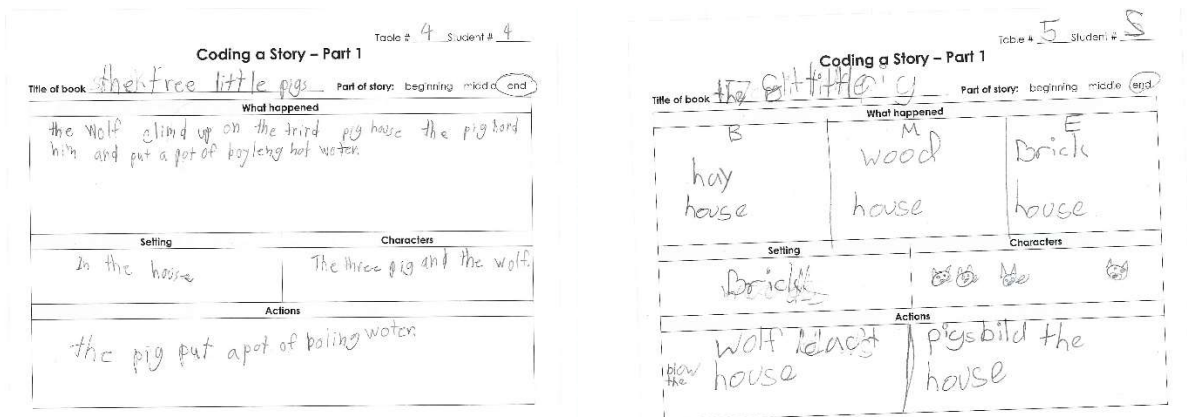 Table # 4 Student # 4
Coding a Story – Part 1
Title of book the free little pigs Part of story: beginning middle end
What happened
the wolf climd up on the trird pig house the pig hord
him and put a pot of boyleng hot woter.
Setting Characters
In the house The three pig and the wolf.
Actions
the pig put a pot of boiling woter.
Table # 5 Student # 5
Coding a Story – Part 1
Title of book the Part of story: beginning middle end
What happened
B M E
hay wood Brick
house house house
Setting Characters
Brick
Actions
wolf pigs bild the
blow the house house